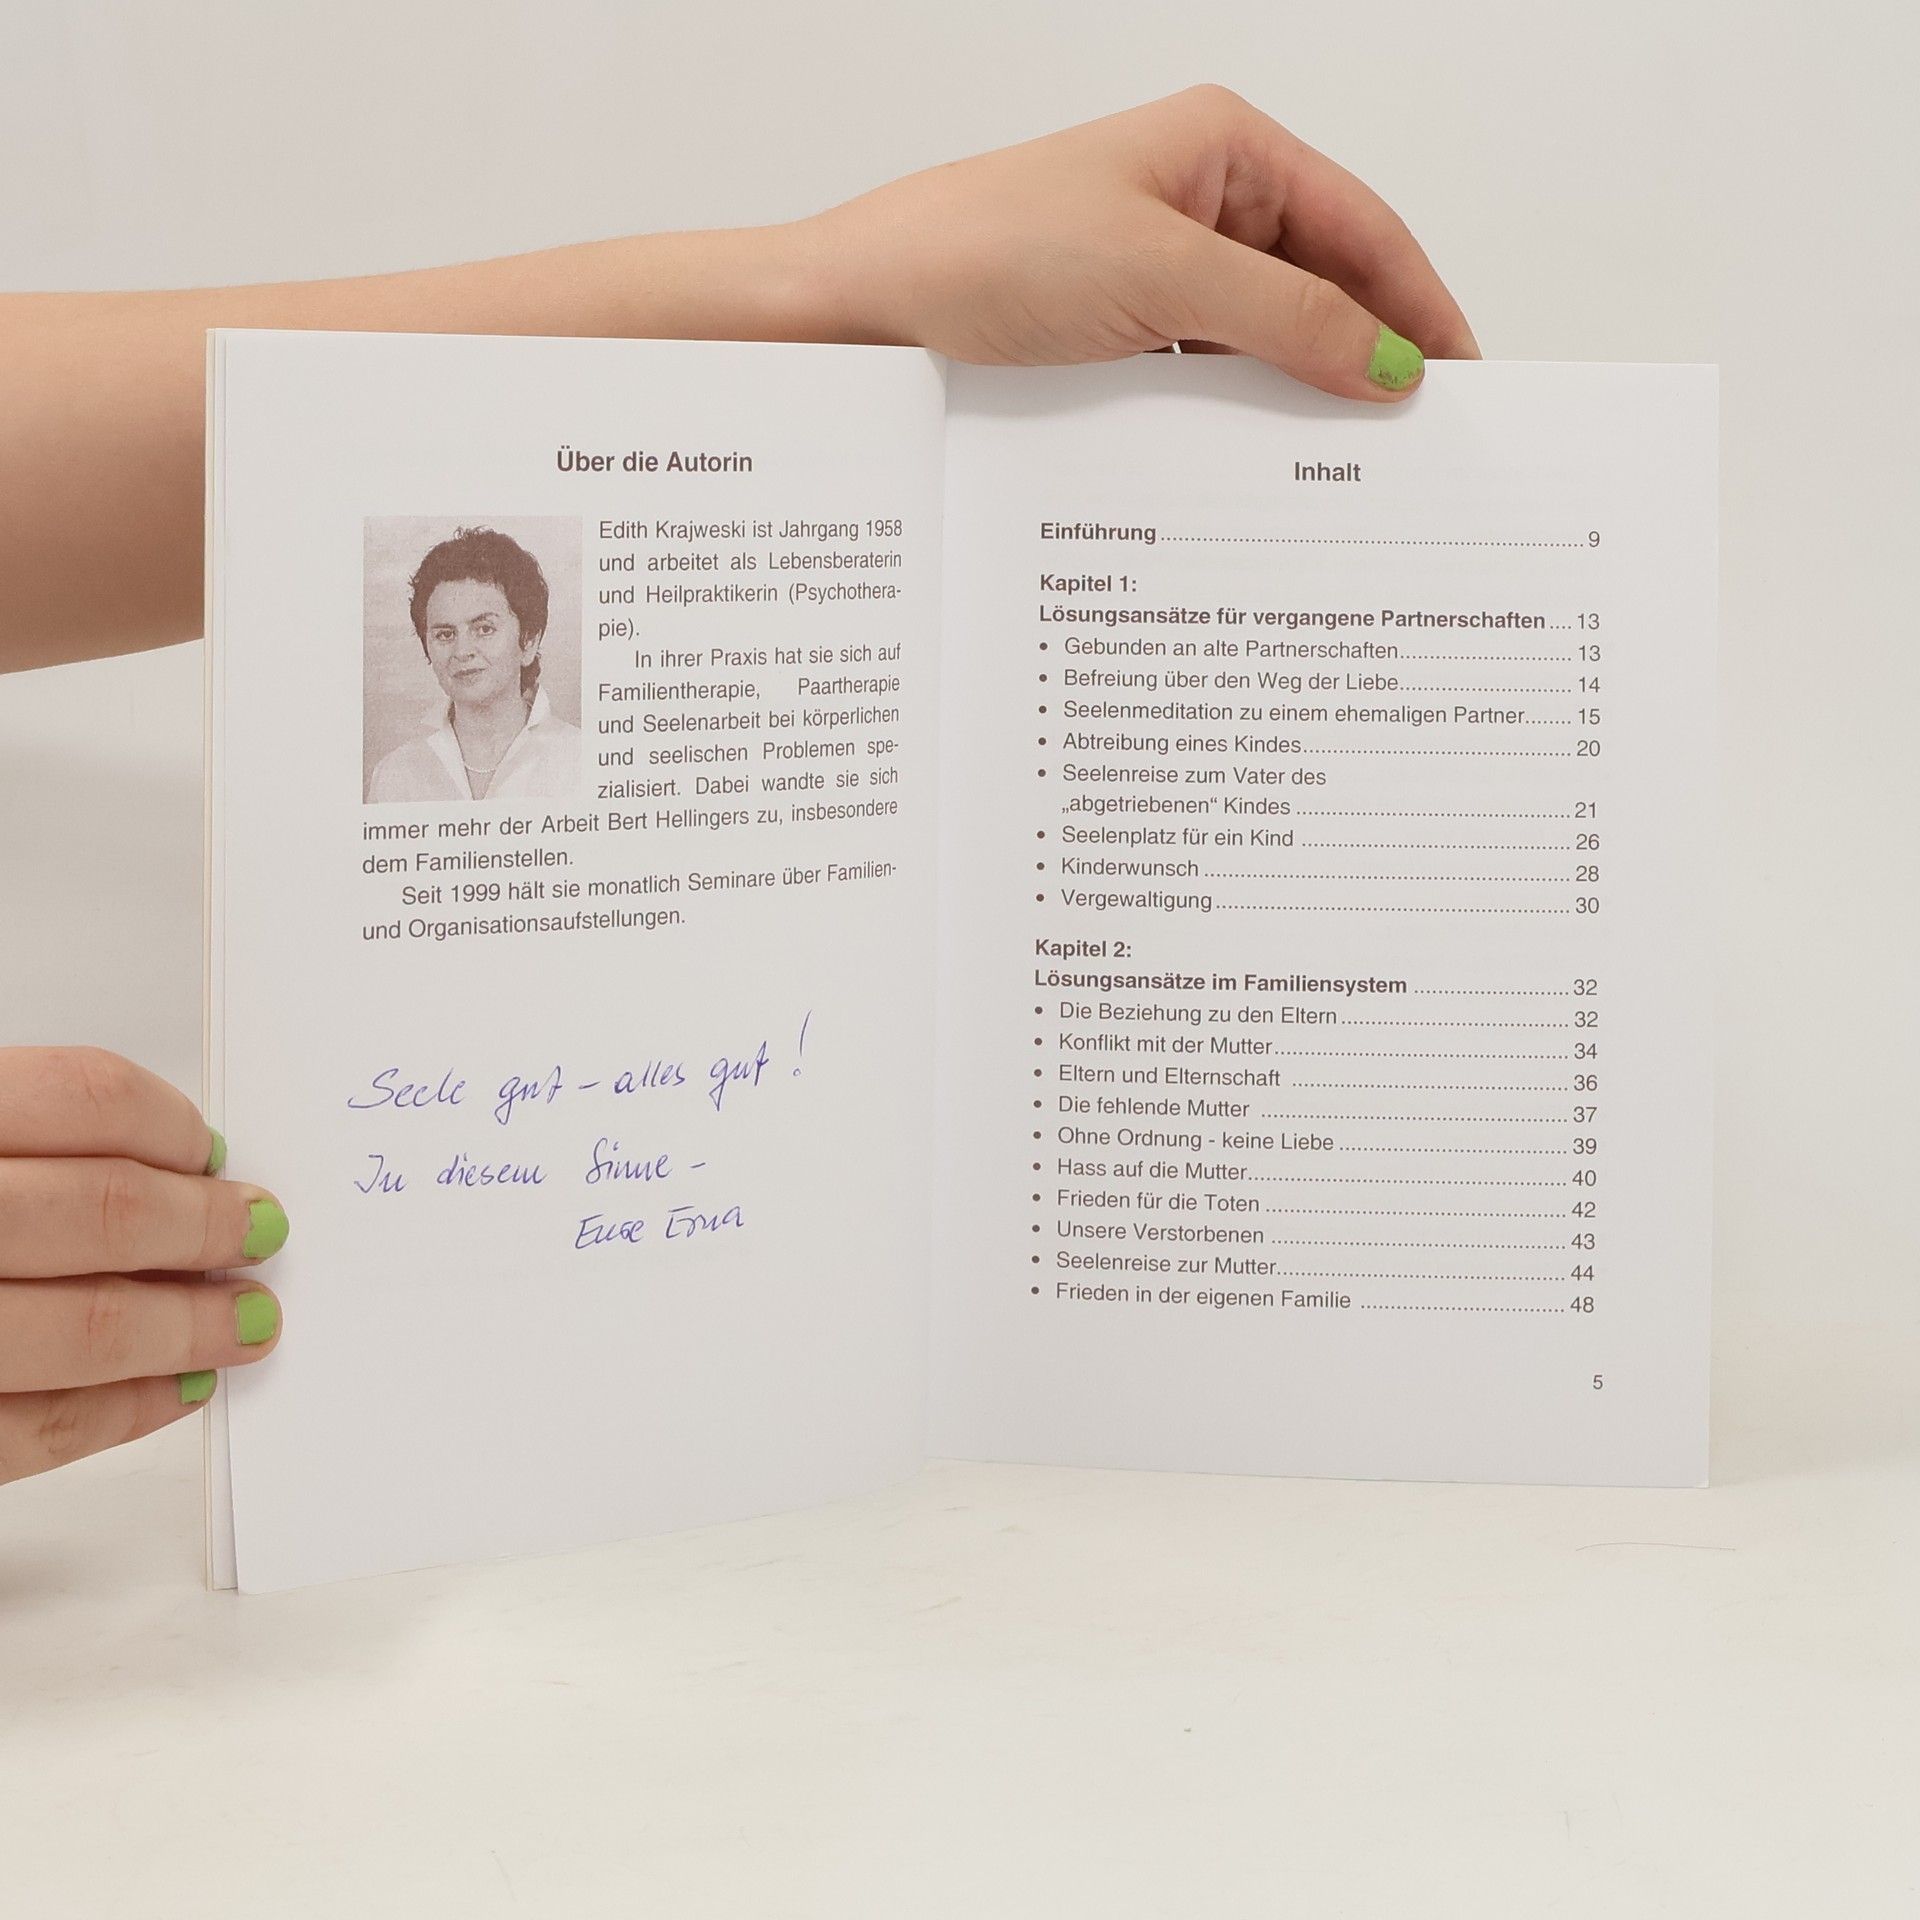 Über die Autorin
Edith Krajweski ist Jahrgang 1958
und arbeitet als Lebensberaterin
und Heilpraktikerin (Psychothera-
pie).
In ihrer Praxis hat sie sich auf
Familientherapie, Paartherapie
und Seelenarbeit bei körperlichen
und seelischen Problemen spe-
zialisiert. Dabei wandte sie sich
immer mehr der Arbeit Bert Hellingers zu, insbesondere
dem Familienstellen.
Seit 1999 hält sie monatlich Seminare über Familien-
und Organisationsaufstellungen.
Seele gut – alles gut!
In diesem Sinne –
Eure Erna
Inhalt
Einführung ........ 9
Kapitel 1:
Lösungsansätze für vergangene Partnerschaften .... 13
• Gebunden an alte Partnerschaften ........ 13
• Befreiung über den Weg der Liebe ........ 14
• Seelenmeditation zu einem ehemaligen Partner ........ 15
• Abtreibung eines Kindes ........ 20
• Seelenreise zum Vater des
„abgetriebenen“ Kindes ........ 21
• Seelenplatz für ein Kind ........ 26
• Kinderwunsch ........ 28
• Vergewaltigung ........ 30
Kapitel 2:
Lösungsansätze im Familiensystem ........ 32
• Die Beziehung zu den Eltern ........ 32
• Konflikt mit der Mutter ........ 34
• Eltern und Elternschaft ........ 36
• Die fehlende Mutter ........ 37
• Ohne Ordnung - keine Liebe ........ 39
• Hass auf die Mutter ........ 40
• Frieden für die Toten ........ 42
• Unsere Verstorbenen ........ 43
• Seelenreise zur Mutter ........ 44
• Frieden in der eigenen Familie ........ 48
5